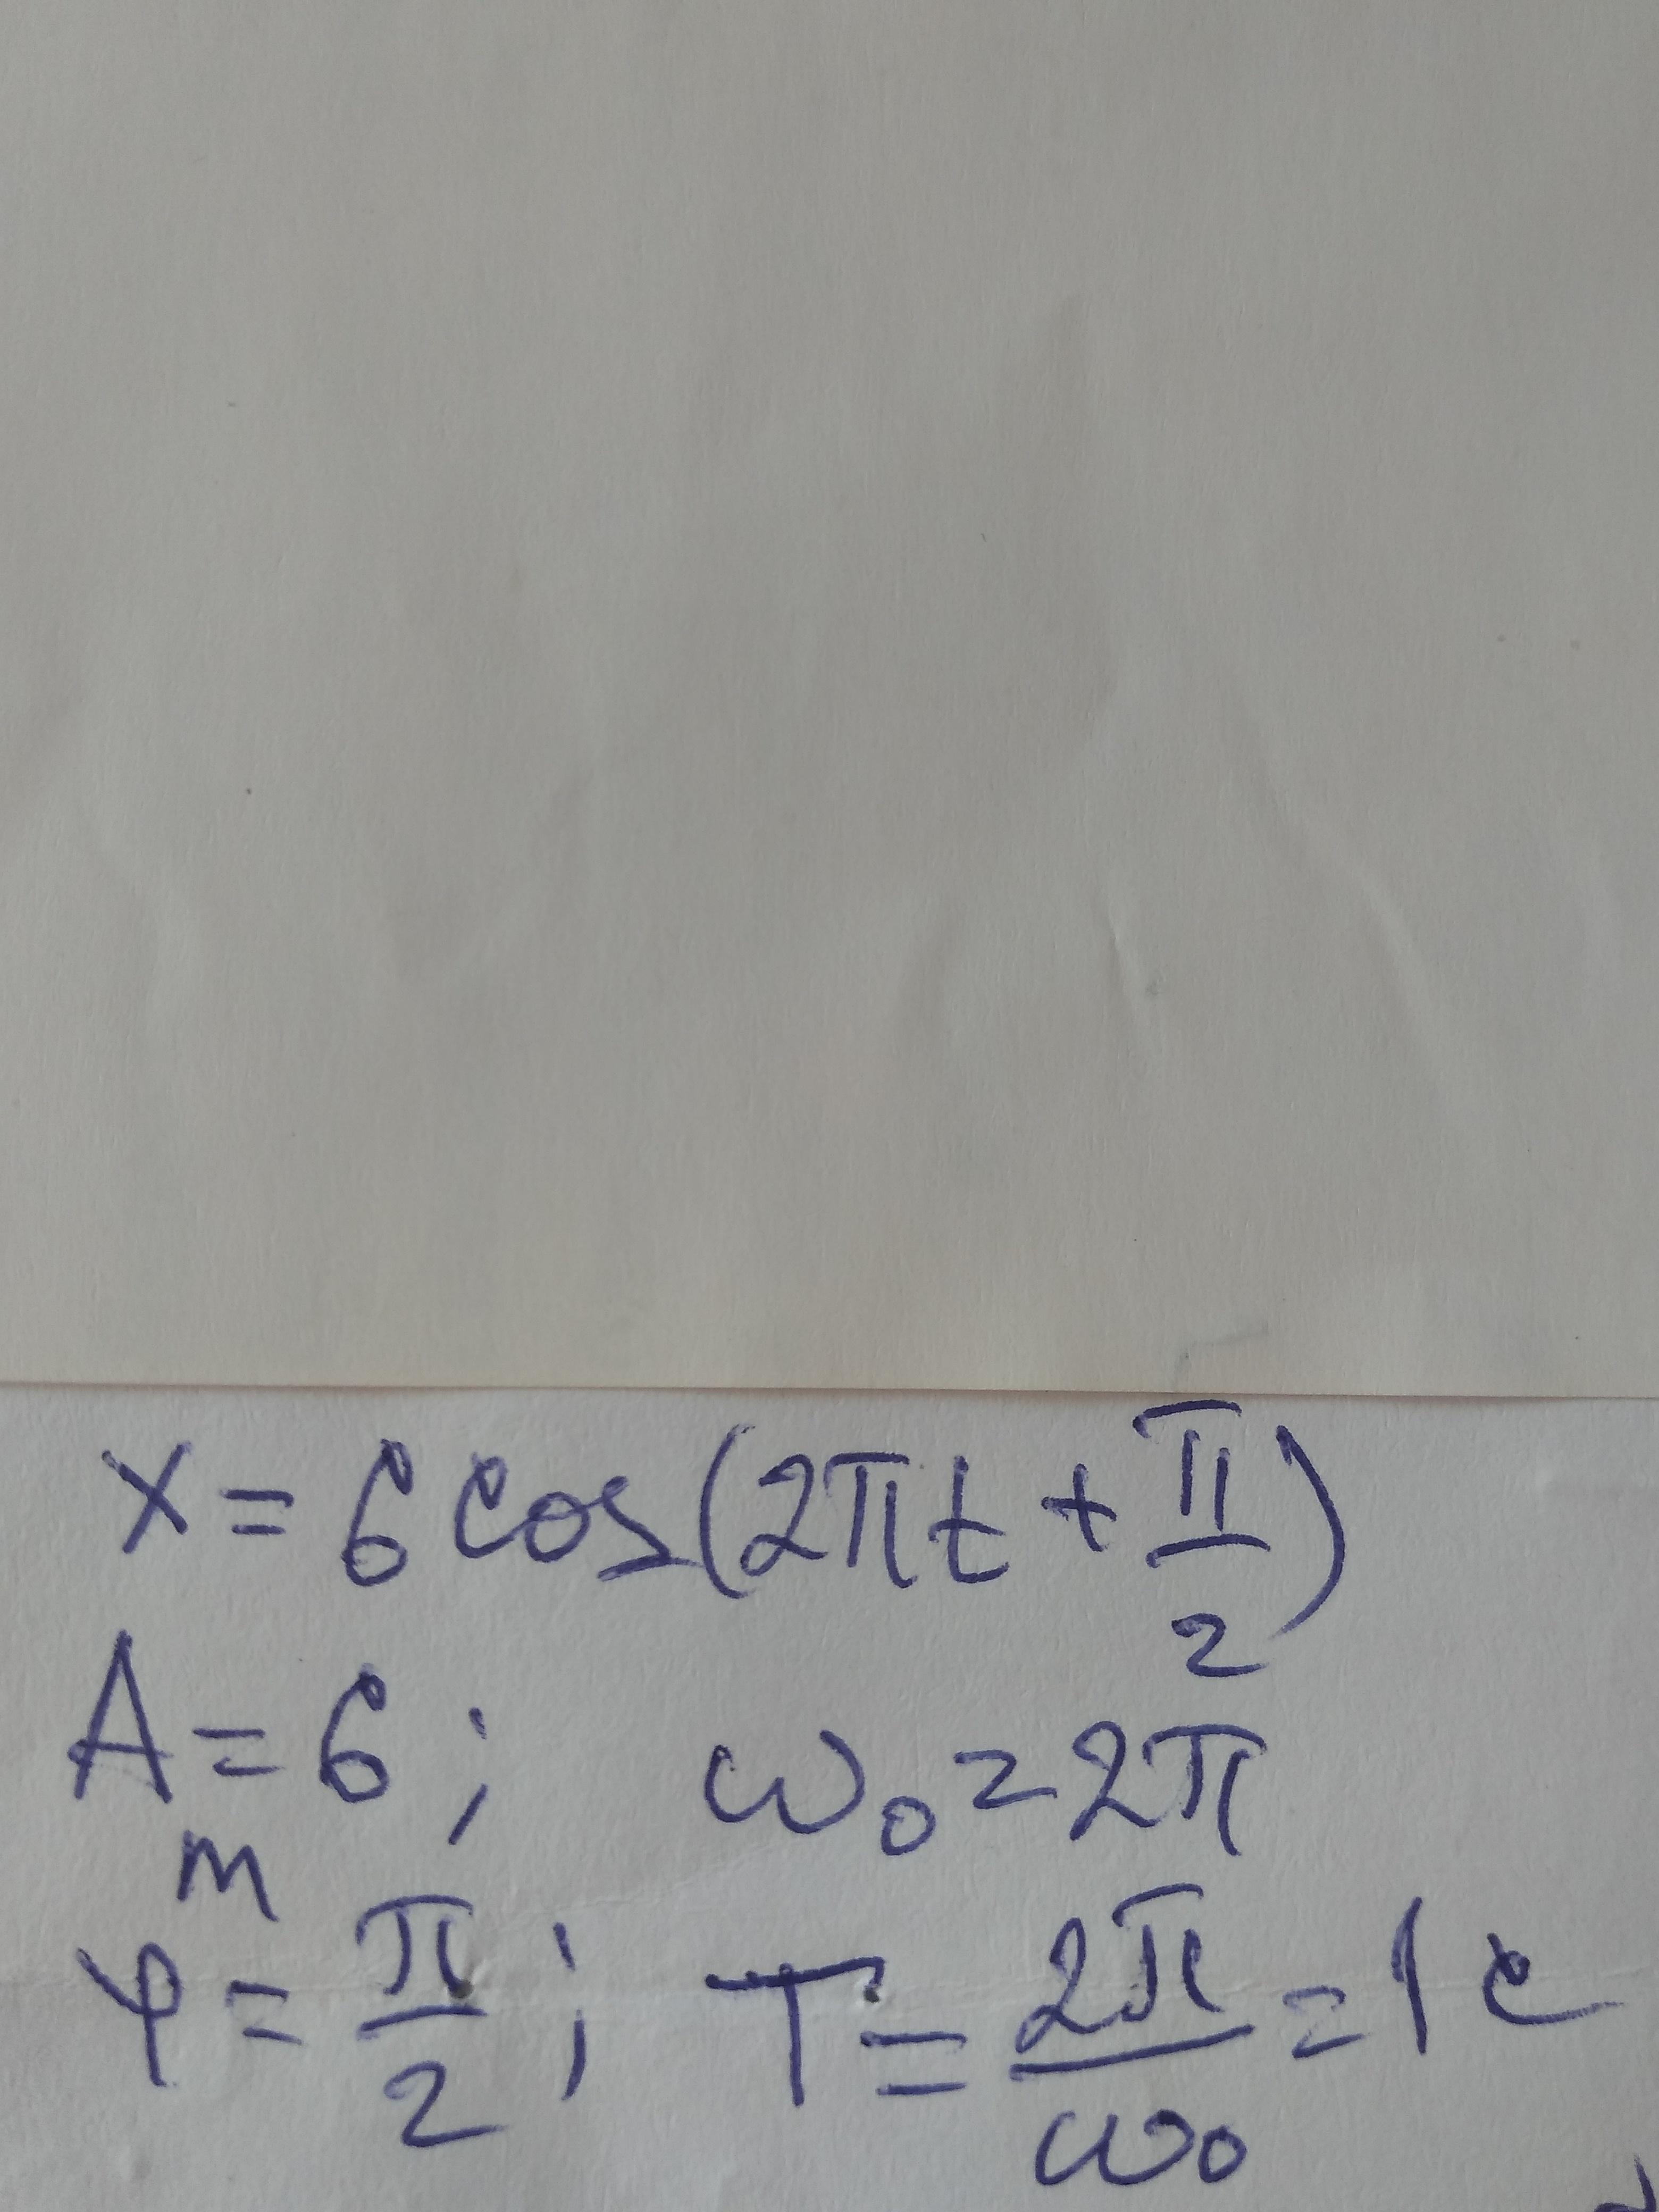 x = 6 cos(2πt + π/2)
A = 6 ; ω₀ = 2π
m
φ = π/2 ; T = 2π/ω₀ = 1 с